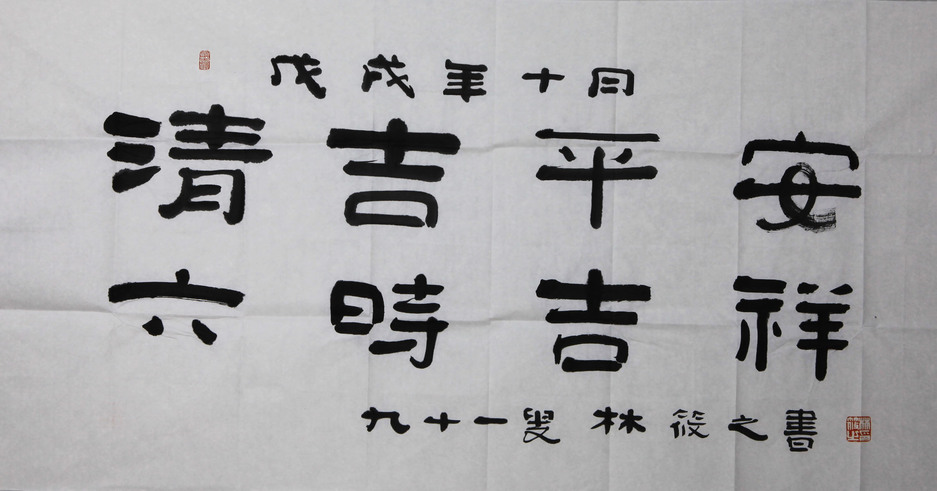 戊戌年十月
清吉平安
六時吉祥
九十一叟林筱之書